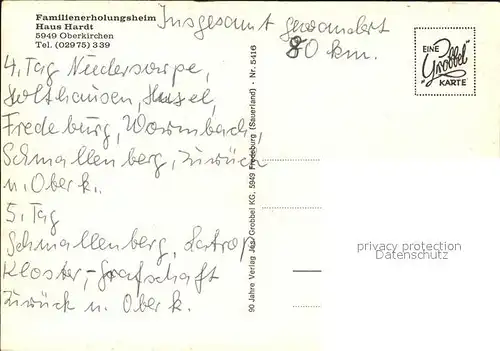 Familienerholungsheim
Haus Hardt
5949 Oberkirchen
Tel. (02975) 339
Insgesamt gewandert
80 km.
EINE
Grobbel
KARTE
4. Tag Niedersorpe,
Holthausen, Husel,
Fredeburg, Wormbach
Schmallenberg, zurück
n. Oberk.
5. Tag
Schmallenberg, Latrop
Kloster,-Grafschaft
zurück n. Oberk.
90 Jahre Verlag Jos. Grobbel KG, 5949 Fredeburg (Sauerland) - Nr. 5416
privacy protection
Datenschutz